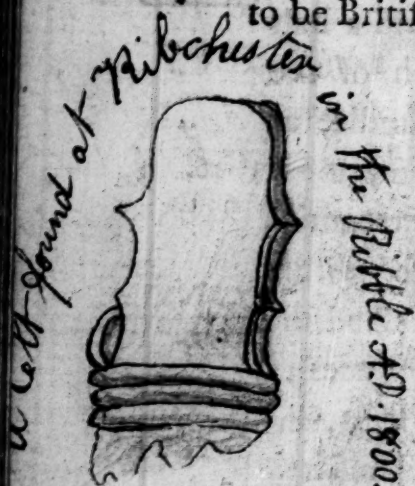 to be Britiſ
a Celt found at Ribchester
in the Ribble A.D. 1800.